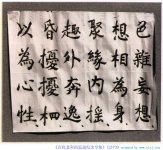 色雜妄想
想相為身
聚緣內搖
趣外奔逸
昏擾擾相
以為心性